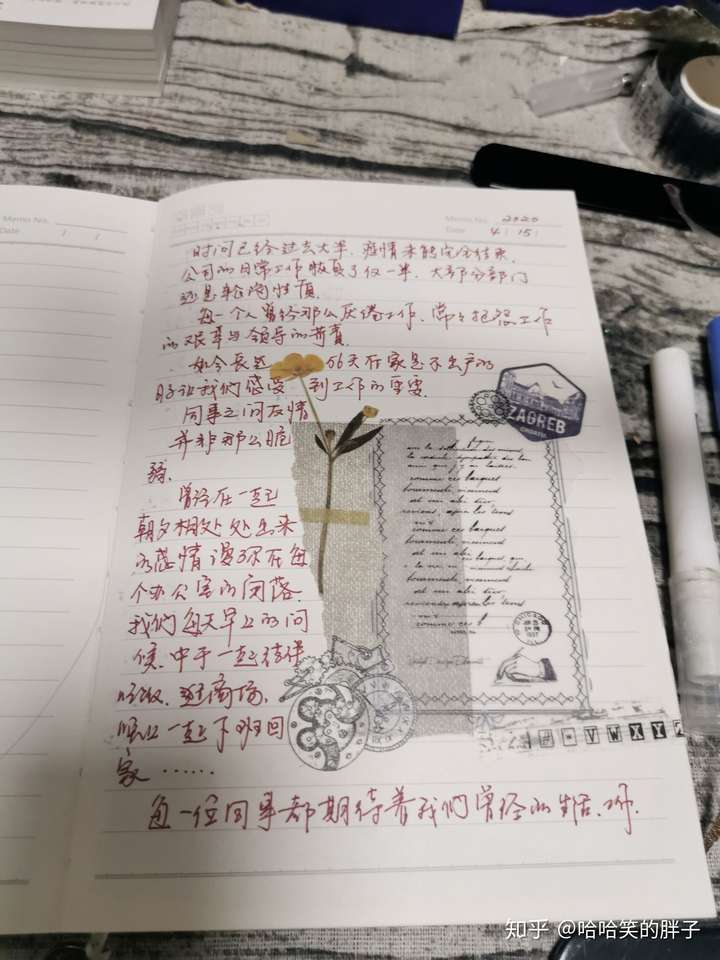 Memo No.
Date / /
Memo No. 2020
Date 4 / 15 /
时间已经过去大半，疫情未能完全结束。
公司的日常工作恢复了仅一半，大部分部门
还是轮岗性质。
每一个人曾经那么厌倦工作、常常抱怨工作
的艰辛与领导的苛责
如今长达 66天在家足不出户的
时光让我们感受 到工作的重要
同事之间友情
并非那么脆
弱。
曾经在一起
朝夕相处 处出来
的感情 漫了在每
个办公室的角落
我们每天早上的问
候，中午一起结伴
吃饭、逛商场，
晚上一起下班回
家……
每一位同事都期待着我们曾经的生活
ZAGREB
CROATIA
comme ces barques
comme ces barques
comme ces
CHICAGO
1937
V W X Y
知乎 @哈哈笑的胖子